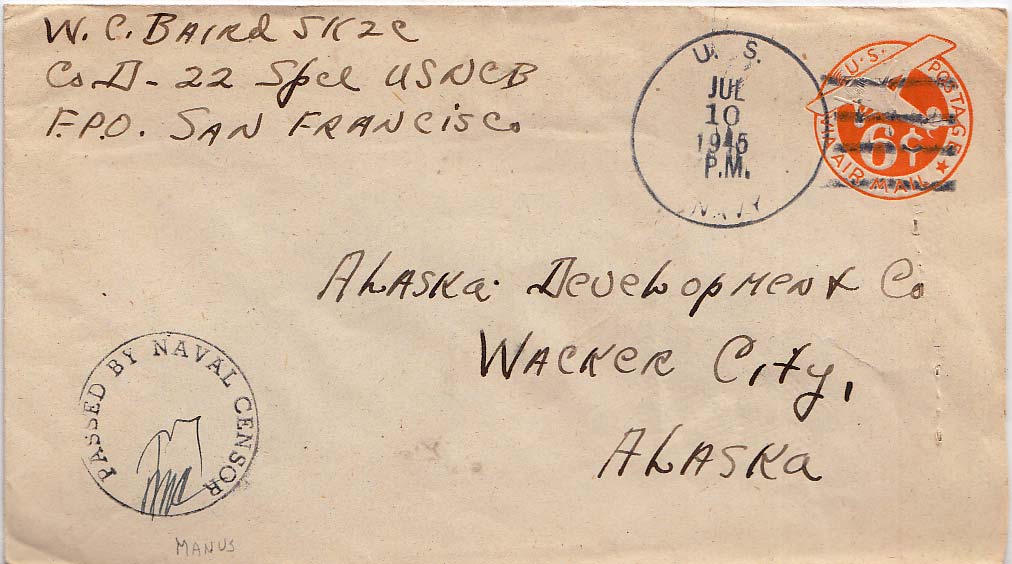 W. C. Baird SK2c
Co. D - 22 Spcl USNCB
F.P.O. San Francisco
U. S.
JUL
10
1945
P.M.
NAVY
U.S. POSTAGE
6¢
VIA AIR MAIL
Alaska Development Co
Wacker City,
Alaska
PASSED BY NAVAL CENSOR
MANUS